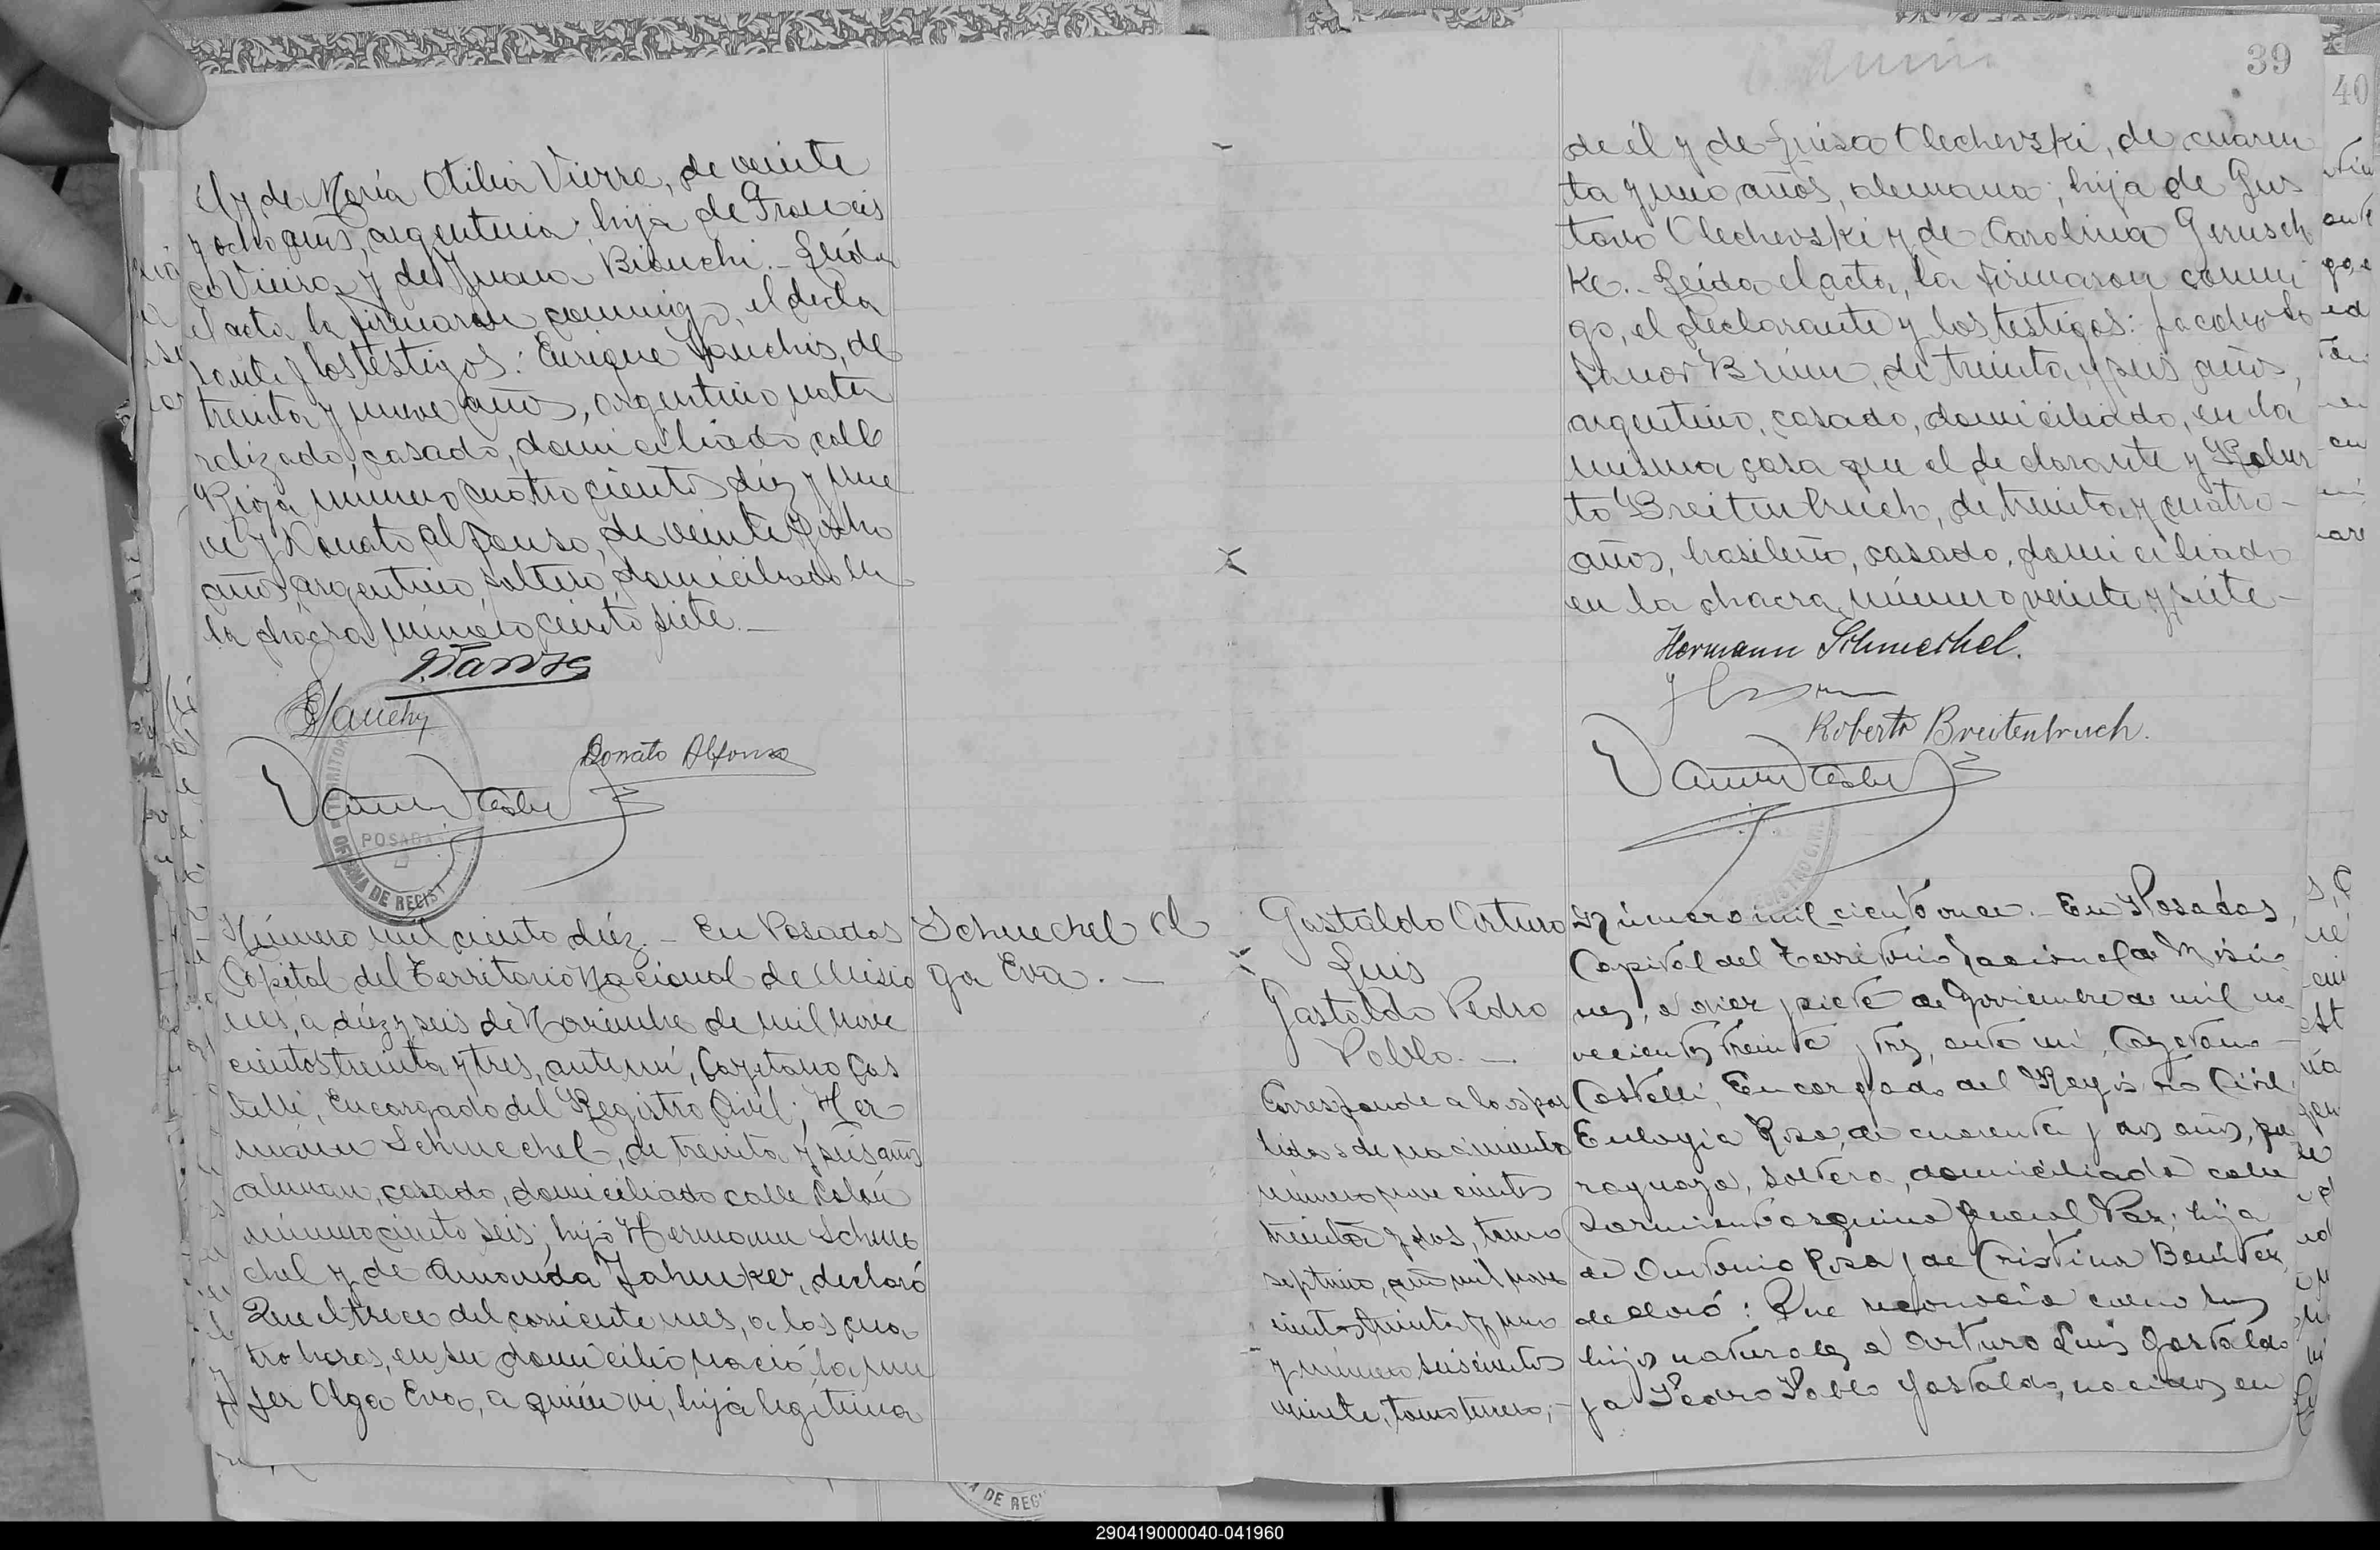 él y de María Otilia Vierra, de veinte
y ocho años, argentina; hija de Francis
co Vieira y de Juana Bianchi.- Leída
el acta la firmaron conmigo, el decla
rante y los testigos: Enrique Yauchis, de
treinta y nueve años, argentino natu
ralizado, casado, domiciliado calle
Rioja número cuatrocientos diez y nue
ve y Donato Alfonso, de veinte y ocho
años, argentino, soltero, domiciliado en
la chacra número ciento siete.-
Donato Alfonso
POSADAS
OFICINA DE REGIST
Número mil ciento diez.- En Posadas
Capital del Territorio Nacional de Misio
nes, a diez y seis de Noviembre de mil nove
cientos treinta y tres, ante mí, Cayetano Cas
telli, Encargado del Registro Civil; Her
mann Schmechel, de treinta y seis años
aleman, casado, domiciliado calle Colón
número ciento seis; hijo Hermann Schme
chel y de Amanda Jahnker, declaró
Que el trece del corriente mes, a las cua
tro horas, en su domicilio nació la mu
jer Olga Eva, a quién vi, hija legítima
Schmechel Ol
ga Eva.-
39
de él y de Luisa Olechevski, de cuaren
ta y uno años, alemana; hija de Gus
tavo Olechevski y de Carolina Gerusch
ke.- Leída el acta, la firmaron conmi
go, el declarante y los testigos: Jacobo
Brum, de treinta y seis años,
argentino, casado, domiciliado, en la
misma casa que el declarante y Rober
to Breitenbruch, de treinta y cuatro-
años, brasileño, casado, domiciliado
en la chacra número veinte y siete-
Hermann Schmechel.
Roberto Breitenbruch.
Gastaldo Arturo
Luis
Gastaldo Pedro
Pablo.-
Corresponde a las par
tidas de nacimiento
número nove cientos
treinta y dos, tomo
septimo, año mil nove
cientos treinta y uno
y número seiscientos
veinte, tomo tercero,-
Número mil ciento once.- En Posadas,
Capital del Territorio Nacional de Misio
nes, a diez y siete de Noviembre de mil no
vecientos treinta y tres, ante mí, Cayetano
Castelli, Encargado del Registro Civil
Eulogia Rosa, de cuarenta y dos años, pa
raguaya, soltera, domiciliada calle
Sarmiento esquina General Paz; hija
de Antonio Rosa y de Cristina Benítez
declaró: Que reconocía como sus
hijos naturales a Arturo Luis Gastaldo
y a Pedro Pablo Gastaldo, nacidos en
40
290419000040-041960